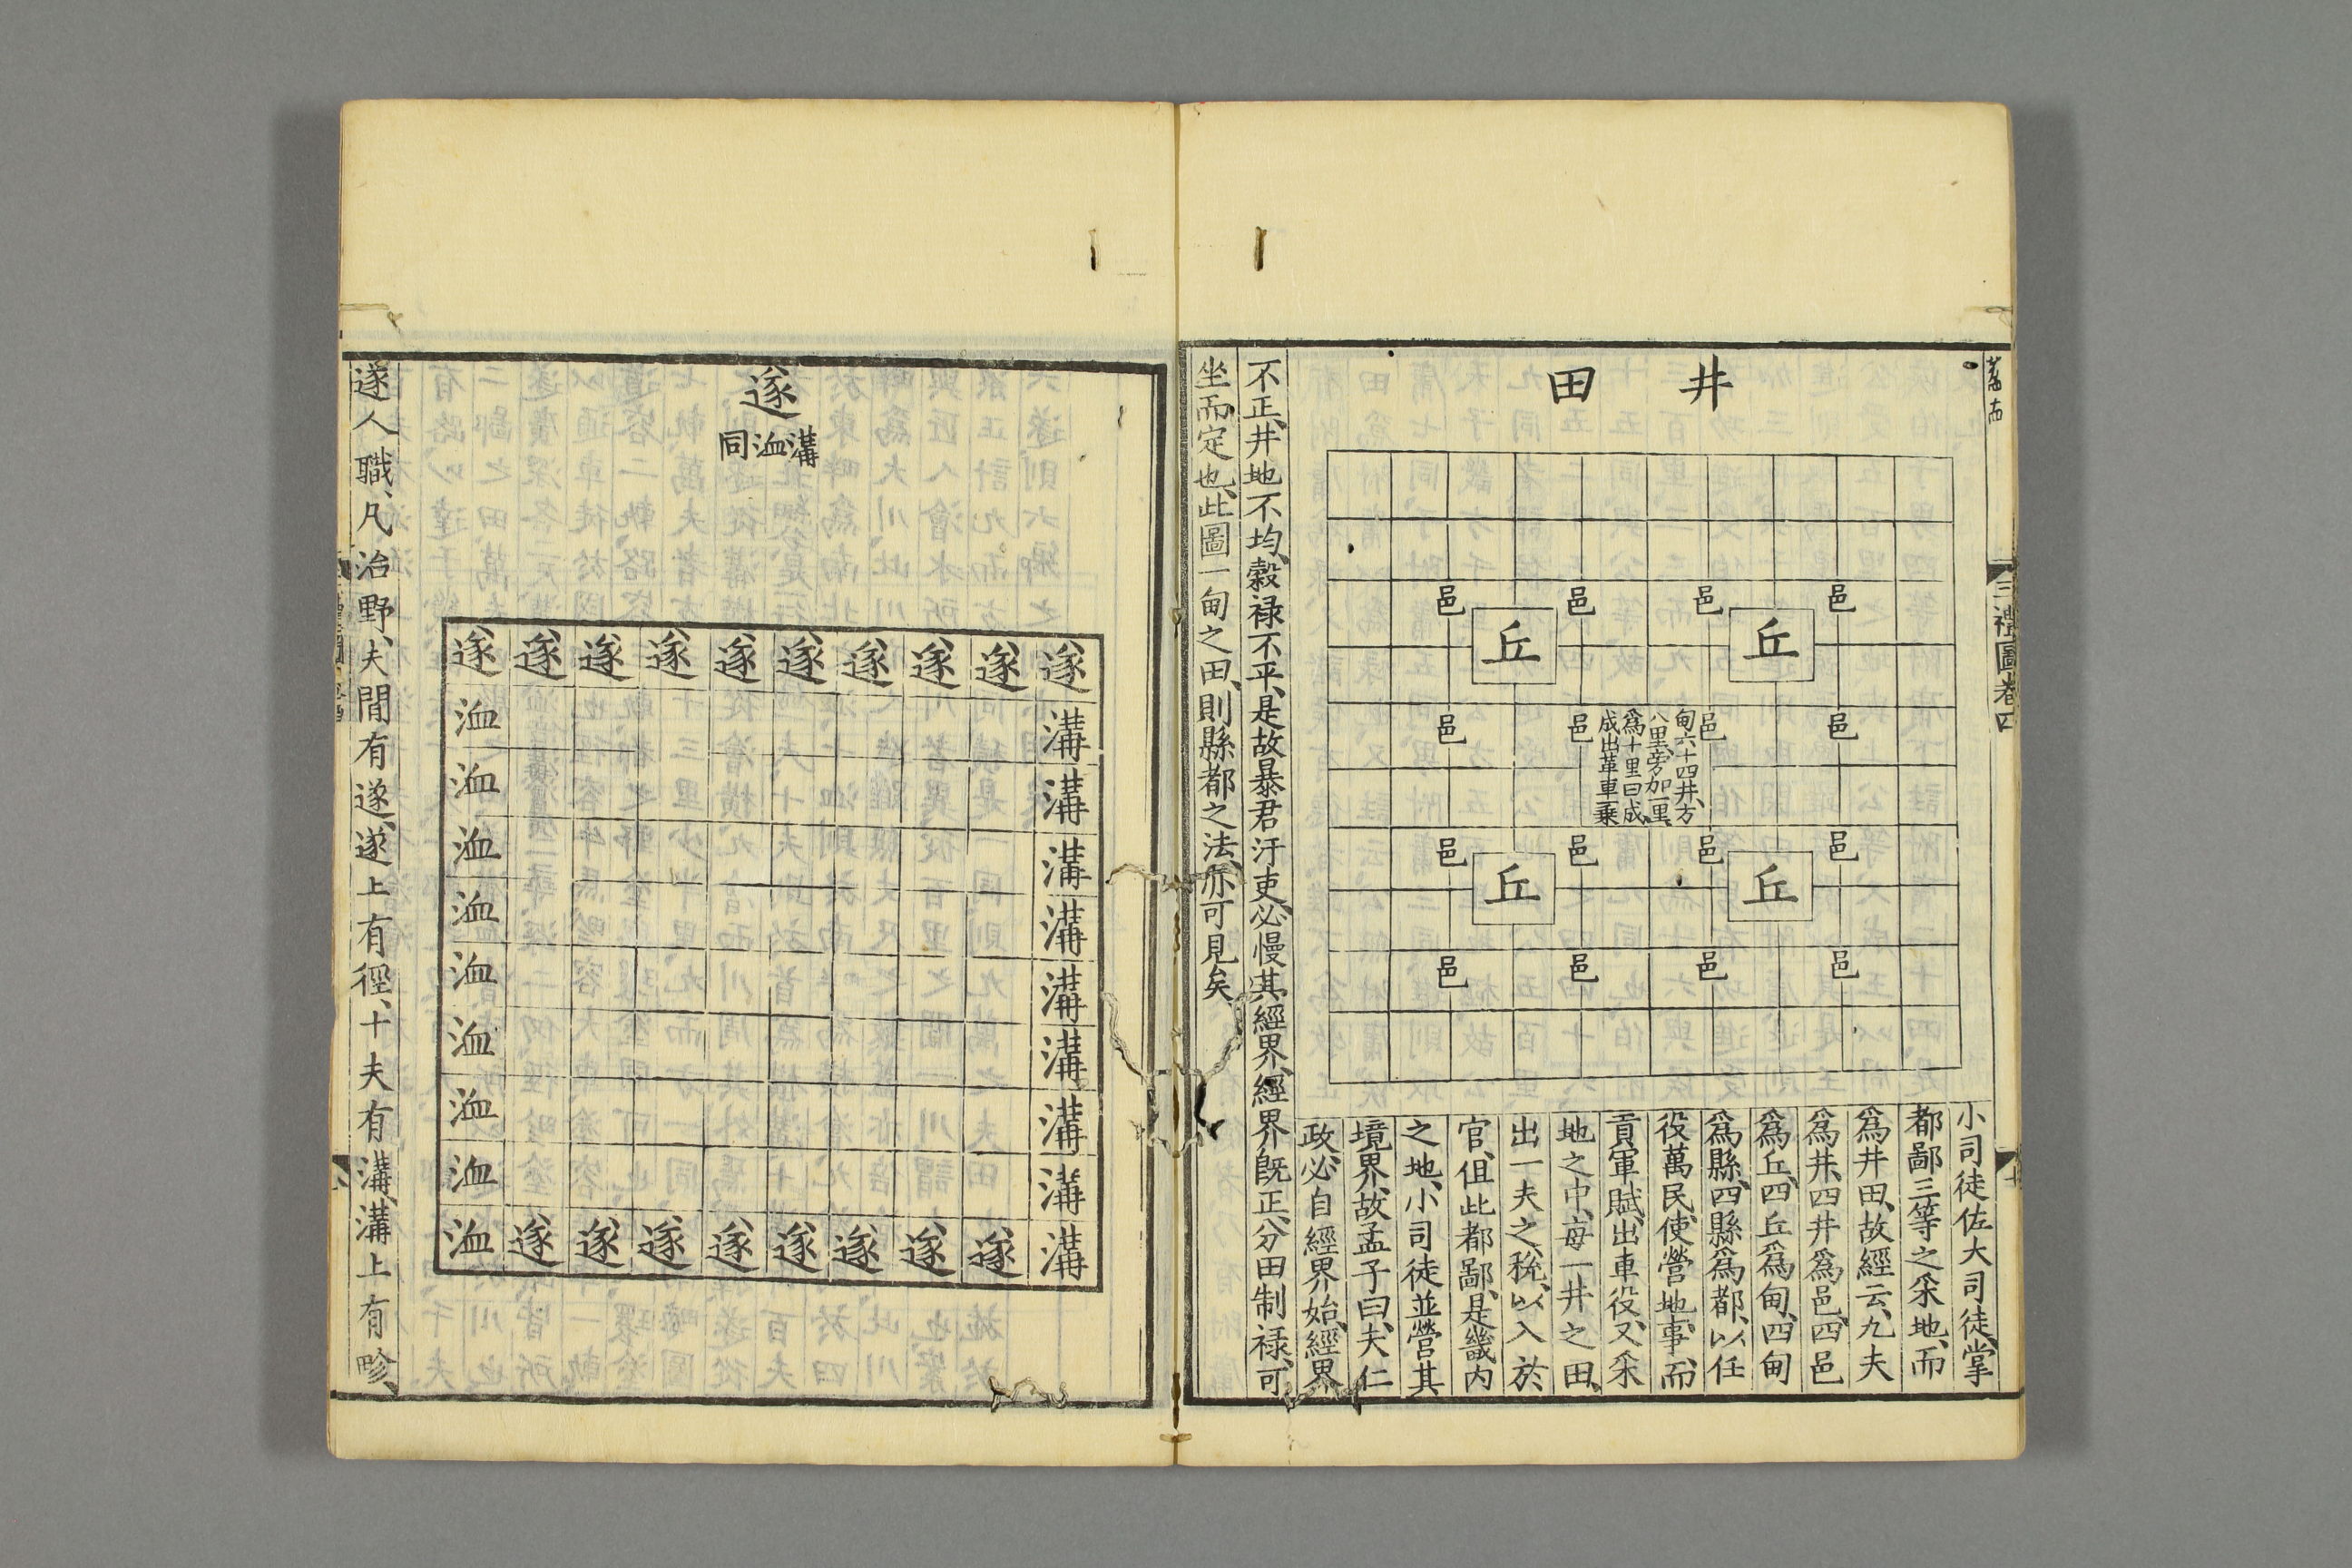 井田
邑 邑 邑 邑
丘 丘
邑 邑 邑 邑
甸六十四井方
八里旁加一里
爲十里曰成
成出革車一乗
邑 邑 邑 邑
丘 丘
邑 邑 邑 邑
小司徒佐大司徒掌
都鄙三等之采地而
爲井田故經云九夫
爲井四井爲邑四邑
爲丘四丘爲甸四甸
爲縣四縣爲都以任
役萬民使營地事而
貢軍賦出車役又采
地之中毎一井之田
出一夫之稅以入於
官但此都鄙是畿内
之地小司徒並營其
境界故孟子曰夫仁
政必自經界始經界
不正井地不均穀禄不平是故暴君汙吏必慢其經界經界既正分田制禄可
坐而定也此圖一甸之田則縣都之法亦可見矣
三禮圖卷四
遂
溝洫同
遂 遂 遂 遂 遂 遂 遂 遂 遂 遂
溝 洫
溝 洫
溝 洫
溝 洫
溝 洫
溝 洫
溝 洫
溝 洫
溝 遂 遂 遂 遂 遂 遂 遂 遂 洫
遂人職凡治野夫間有遂遂上有徑十夫有溝溝上有畛